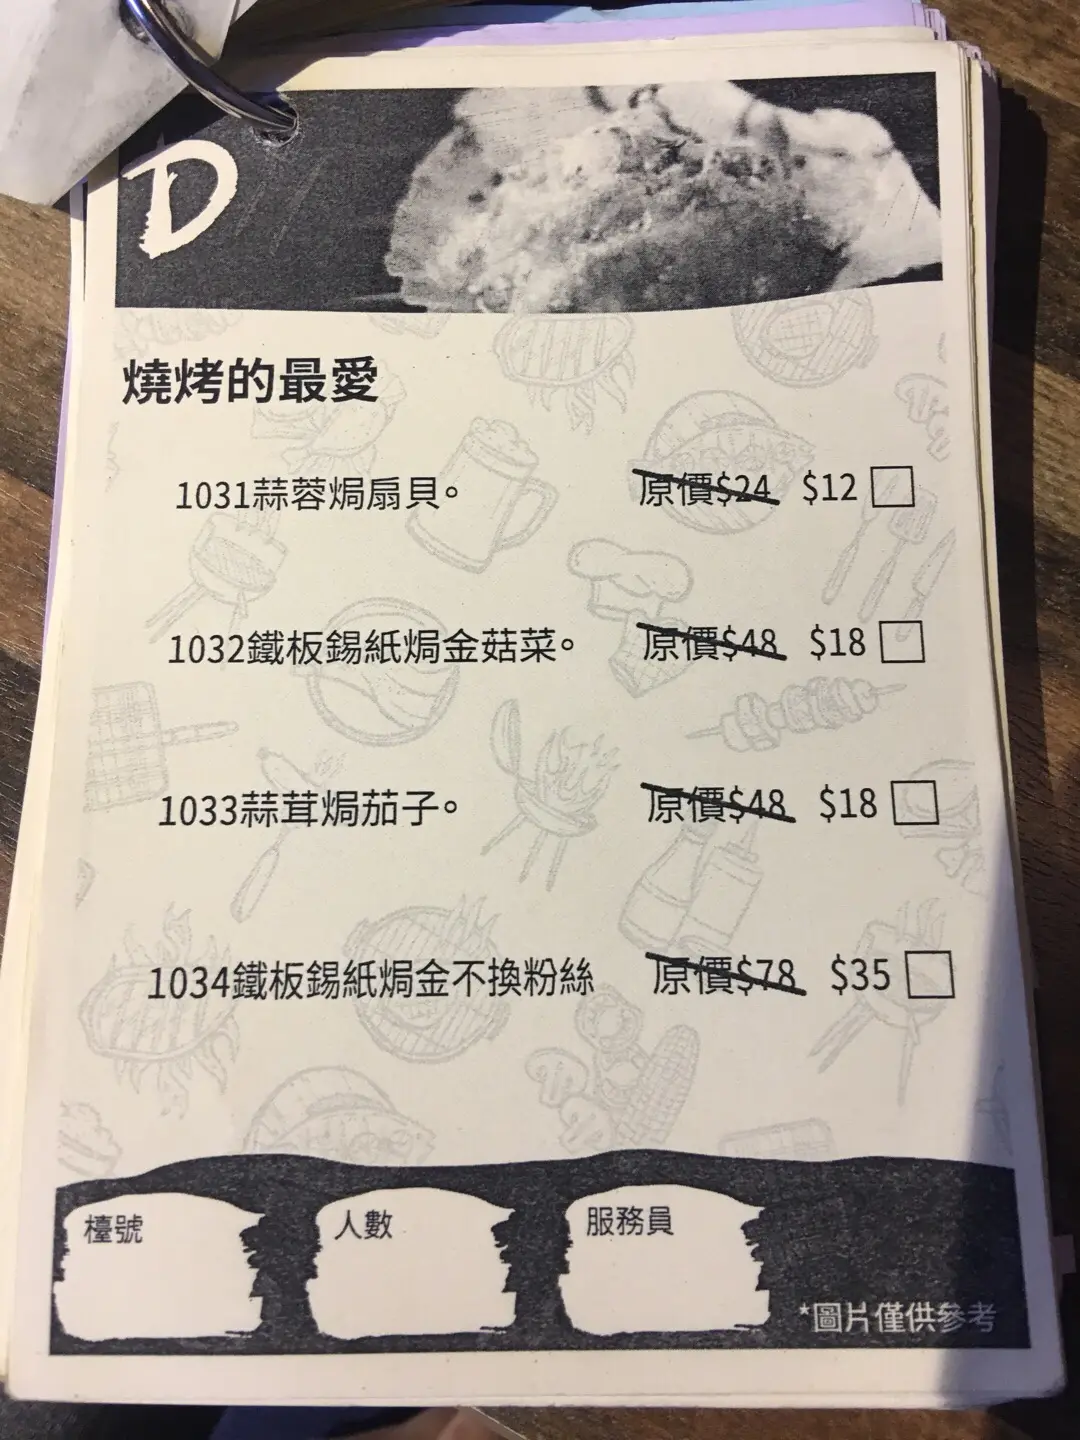 D
燒烤的最愛
1031蒜蓉焗扇貝。 原價$24 $12
1032鐵板錫紙焗金菇菜。 原價$48 $18
1033蒜茸焗茄子。 原價$48 $18
1034鐵板錫紙焗金不換粉絲 原價$78 $35
檯號 人數 服務員
*圖片僅供參考